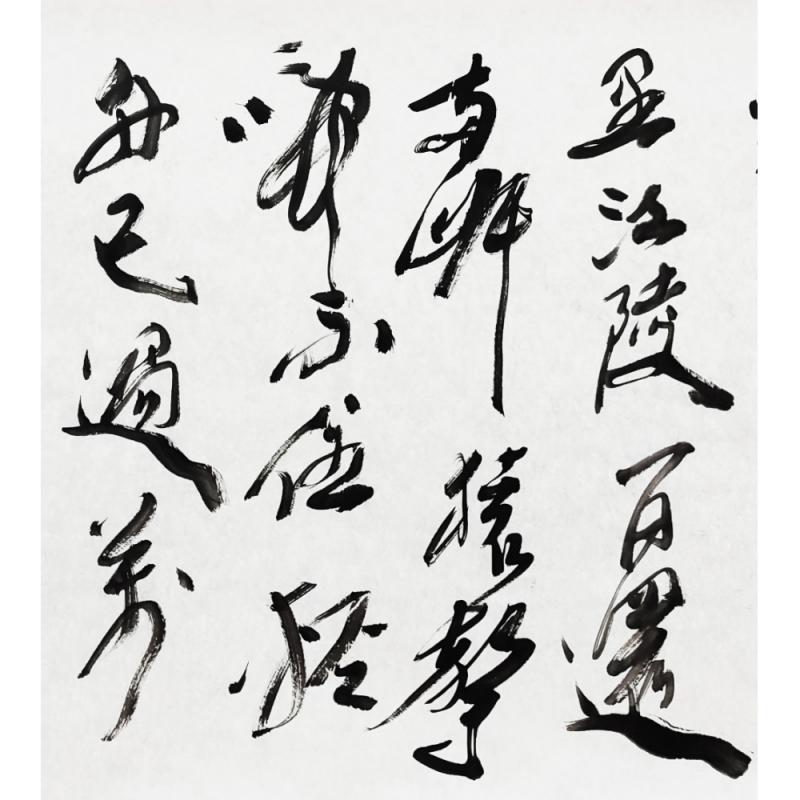 里江陵一日還
兩岸猿聲
啼不住輕
舟已過萬